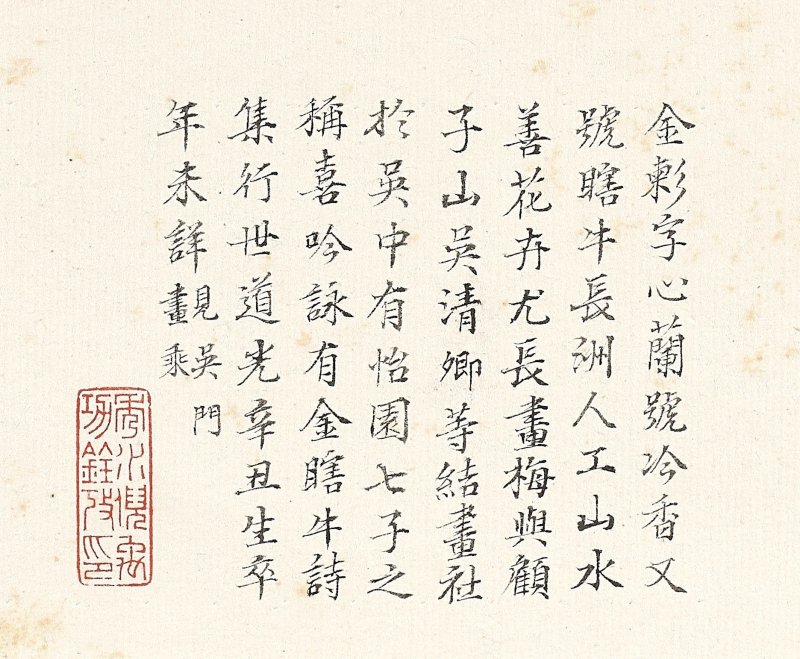 金字心蘭號冷香又
號瞎牛長洲人工山水
善花卉尤長畫梅與顧
子山吳清卿等結畫社
於吳中有怡園七子之
稱喜吟詠有金瞎牛詩
集行世道光辛丑生卒
年未詳
見吳門
畫乘
秀水倪禹
功銓攷印